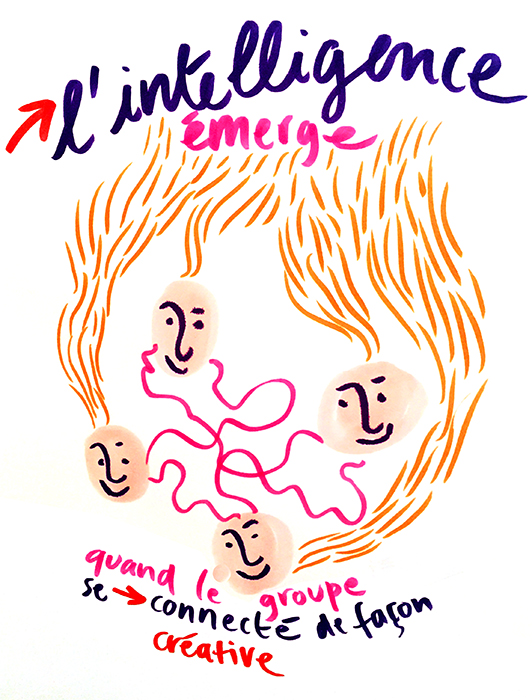 l'intelligence
émerge
quand le groupe
se connecté de façon
créative